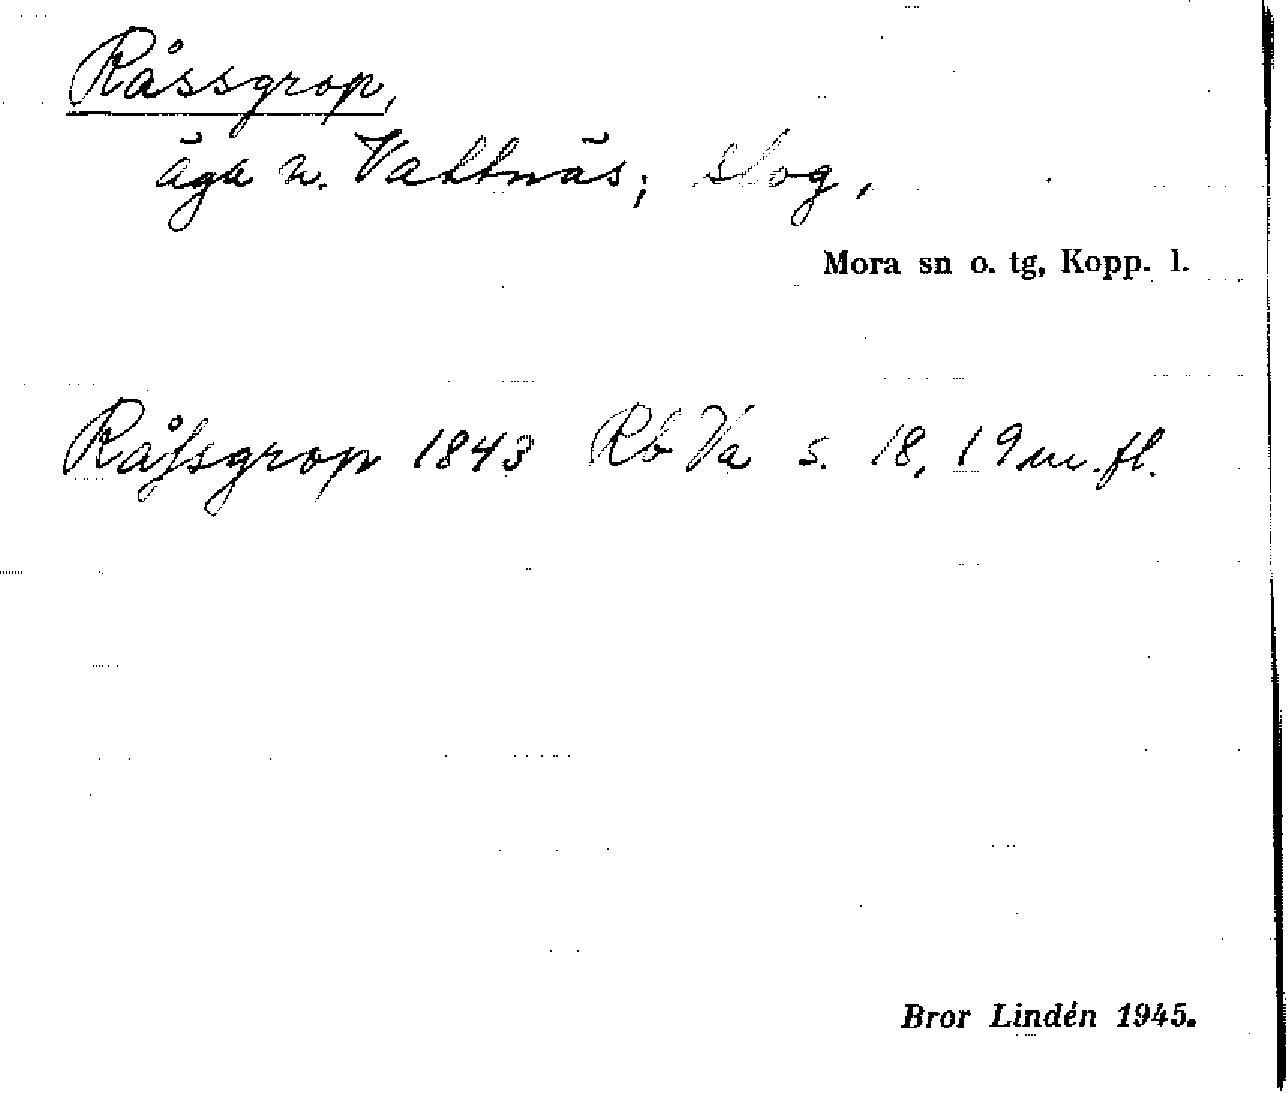 Råssgrop,
äga n. Vattnäs; slog,
Mora sn o. tg, Kopp. l.
Råſsgrop 1843 Rb Va s. 18, 19 m. fl.
Bror Lindén 1945.